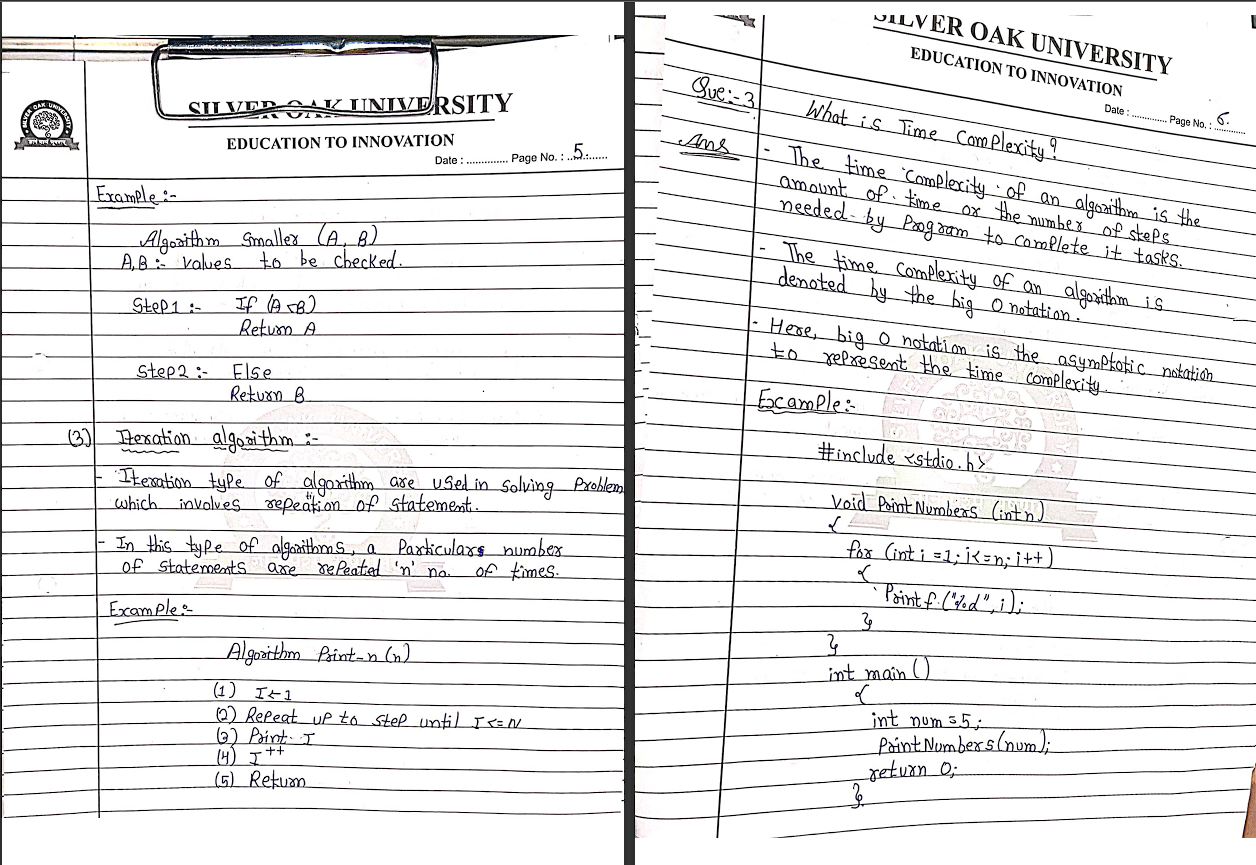 SILVER OAK UNIVERSITY
EDUCATION TO INNOVATION
Date : .............. Page No. : ..5.......
Example :-
Algorithm Smaller (A, B)
A,B :- values to be checked.
Step1 :- If (A<B)
Return A
Step2 :- Else
Return B
(3) Iteration algorithm :-
- Iteration type of algorithm are used in solving Problem
which involves repeation of statement.
- In this type of algorithms, a Particulars number
of statements are repeated 'n' no. of times.
Example :-
Algorithm Print-n (n)
(1) I←1
(2) Repeat up to step until I<=N
(3) Print I
(4) I++
(5) Return
SILVER OAK UNIVERSITY
EDUCATION TO INNOVATION
Date : .............. Page No. : 6.
Que:-3 What is Time Complexity?
Ans - The time complexity of an algorithm is the
amount of time or the number of steps
needed by Program to complete it tasks.
- The time complexity of an algorithm is
denoted by the big O notation.
- Here, big O notation is the asymptotic notation
to represent the time complexity.
Example :-
#include <stdio.h>
void PrintNumbers (int n)
{
for (int i =1; i<=n; i++)
{
Printf ("%d", i);
}
}
int main ()
{
int num = 5;
PrintNumbers(num);
return 0;
}